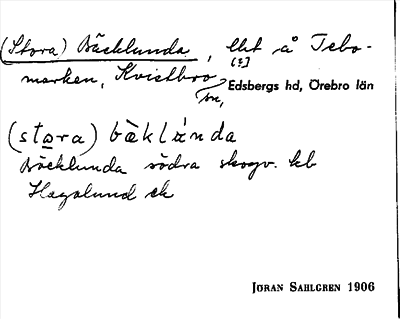 (Stora) Bäcklunda, lht å Tebo-
marken, Kvistbro
[?]
sn, Edsbergs hd, Örebro län
(stora) bäklunda
Bäcklunda södra skogv. kb
Hagalund ek
JÖRAN SAHLGREN 1906